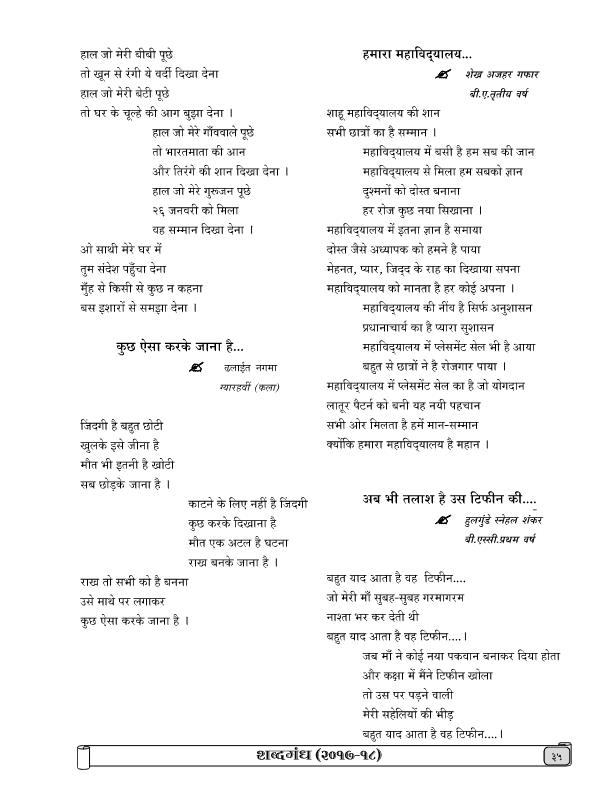 हाल जो मेरी बीबी पूछे
तो खून से रंगी ये वर्दी दिखा देना
हाल जो मेरी बेटी पूछे
तो घर के चूल्हे की आग बुझा देना ।
हाल जो मेरे गाँववाले पूछे
तो भारतमाता की आन
और तिरंगे की शान दिखा देना ।
हाल जो मेरे गुरूजन पूछे
२६ जनवरी को मिला
वह सम्मान दिखा देना ।
ओ साथी मेरे घर में
तुम संदेश पहुँचा देना
मुँह से किसी से कुछ न कहना
बस इशारों से समझा देना ।
कुछ ऐसा करके जाना है...
ढलाईत नगमा
ग्यारहवीं (कला)
जिंदगी है बहुत छोटी
खुलके इसे जीना है
मौत भी इतनी है खोटी
सब छोड़के जाना है ।
काटने के लिए नहीं है जिंदगी
कुछ करके दिखाना है
मौत एक अटल है घटना
राख बनके जाना है ।
राख तो सभी को है बनना
उसे माथे पर लगाकर
कुछ ऐसा करके जाना है ।
हमारा महाविद्‌यालय...
शेख अजहर गफार
बी.ए.तृतीय वर्ष
शाहू महाविद्‌यालय की शान
सभी छात्रों का है सम्मान ।
महाविद्‌यालय में बसी है हम सब की जान
महाविद्‌यालय से मिला हम सबको ज्ञान
दुश्मनों को दोस्त बनाना
हर रोज कुछ नया सिखाना ।
महाविद्‌यालय में इतना ज्ञान है समाया
दोस्त जैसे अध्यापक को हमने है पाया
मेहनत, प्यार, जिद्‌द के राह का दिखाया सपना
महाविद्‌यालय को मानता है हर कोई अपना ।
महाविद्‌यालय की नींव है सिर्फ अनुशासन
प्रधानाचार्य का है प्यारा सुशासन
महाविद्‌यालय में प्लेसमेंट सेल भी है आया
बहुत से छात्रों ने है रोजगार पाया ।
महाविद्‌यालय में प्लेसमेंट सेल का है जो योगदान
लातूर पैटर्न को बनी यह नयी पहचान
सभी ओर मिलता है हमें मान-सम्मान
क्योंकि हमारा महाविद्‌यालय है महान ।
अब भी तलाश है उस टिफीन की....
हुलगुंडे स्नेहल शंकर
बी.एस्सी.प्रथम वर्ष
बहुत याद आता है वह टिफीन....
जो मेरी माँ सुबह-सुबह गरमागरम
नाश्ता भर कर देती थी
बहुत याद आता है वह टिफीन....।
जब माँ ने कोई नया पकवान बनाकर दिया होता
और कक्षा में मैंने टिफीन खोला
तो उस पर पड़ने वाली
मेरी सहेलियों की भीड़
बहुत याद आता है वह टिफीन....।
शब्दगंध (२०१७-१८)
३५